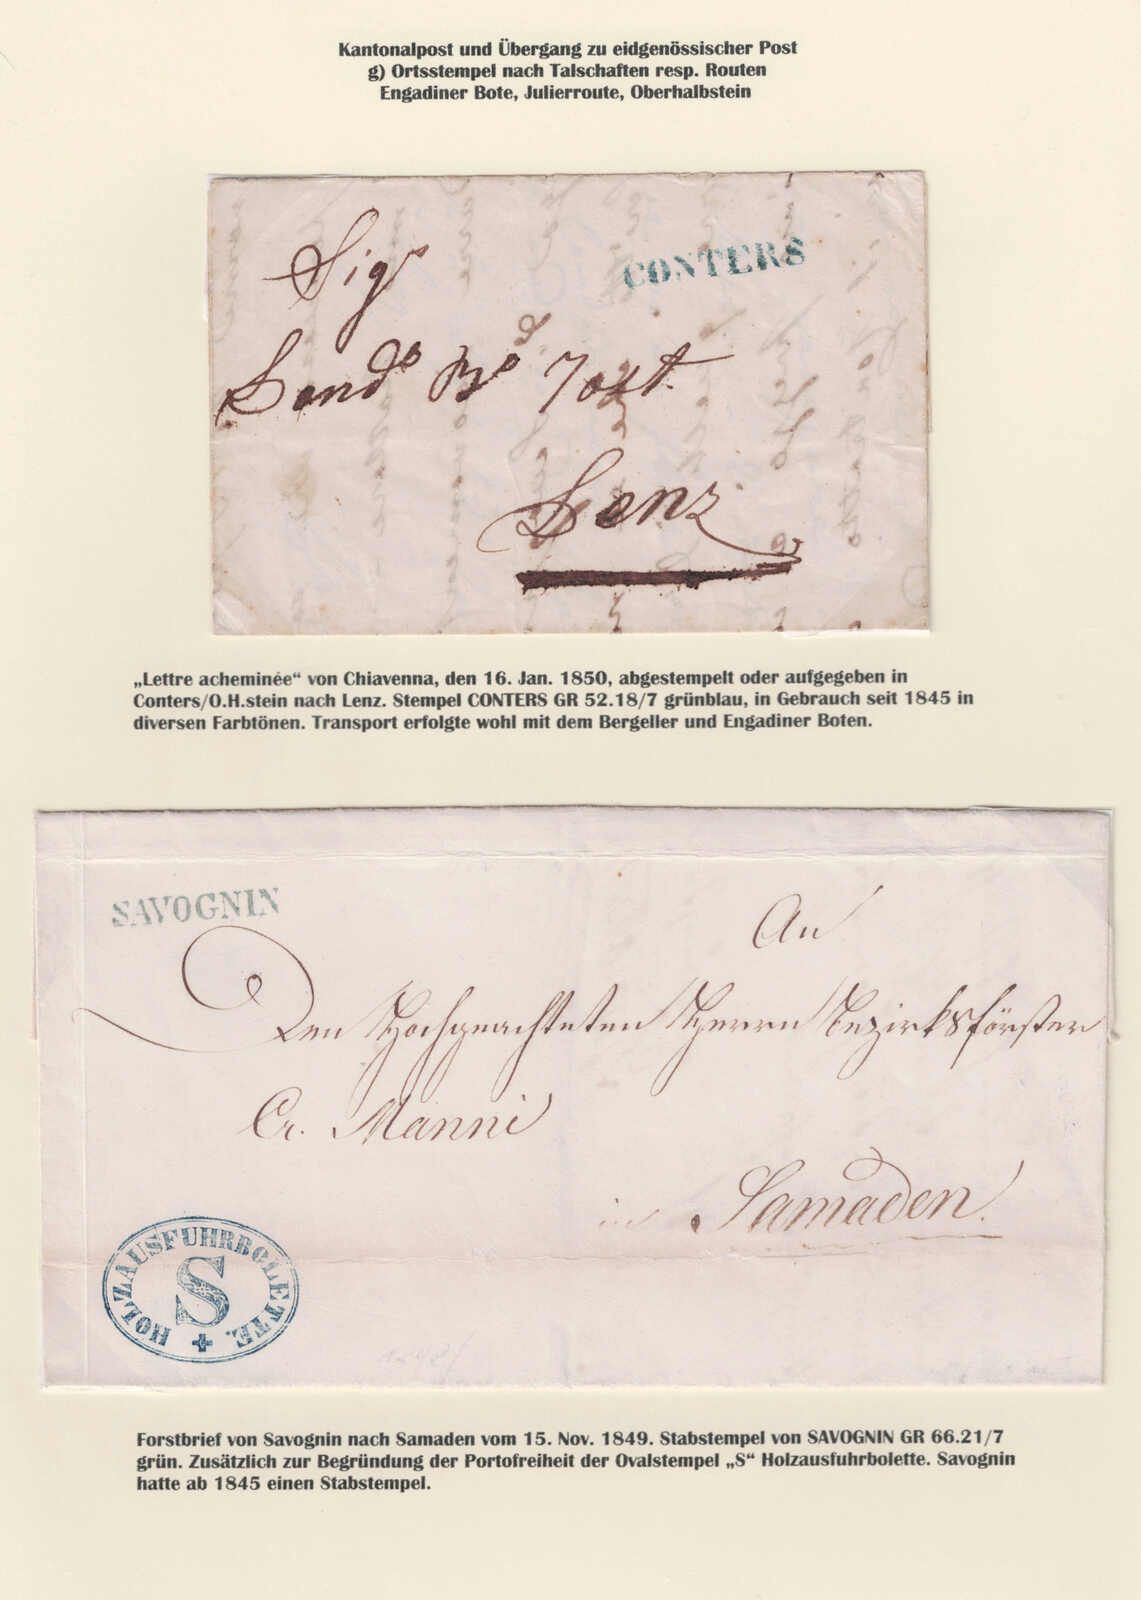 Kantonalpost und Übergang zu eidgenössischer Post
g) Ortsstempel nach Talschaften resp. Routen
Engadiner Bote, Julierroute, Oberhalbstein
CONTERS
Sigr
Lenz
„Lettre acheminée“ von Chiavenna, den 16. Jan. 1850, abgestempelt oder aufgegeben in
Conters/O.H.stein nach Lenz. Stempel CONTERS GR 52.18/7 grünblau, in Gebrauch seit 1845 in
diversen Farbtönen. Transport erfolgte wohl mit dem Bergeller und Engadiner Boten.
SAVOGNIN
An
Den Hochgeachteten Herrn Bezirksförster
Cr. Manni
in Samaden.
HOLZAUSFUHRBOLETTE.
S
Forstbrief von Savognin nach Samaden vom 15. Nov. 1849. Stabstempel von SAVOGNIN GR 66.21/7
grün. Zusätzlich zur Begründung der Portofreiheit der Ovalstempel „S“ Holzausfuhrbolette. Savognin
hatte ab 1845 einen Stabstempel.